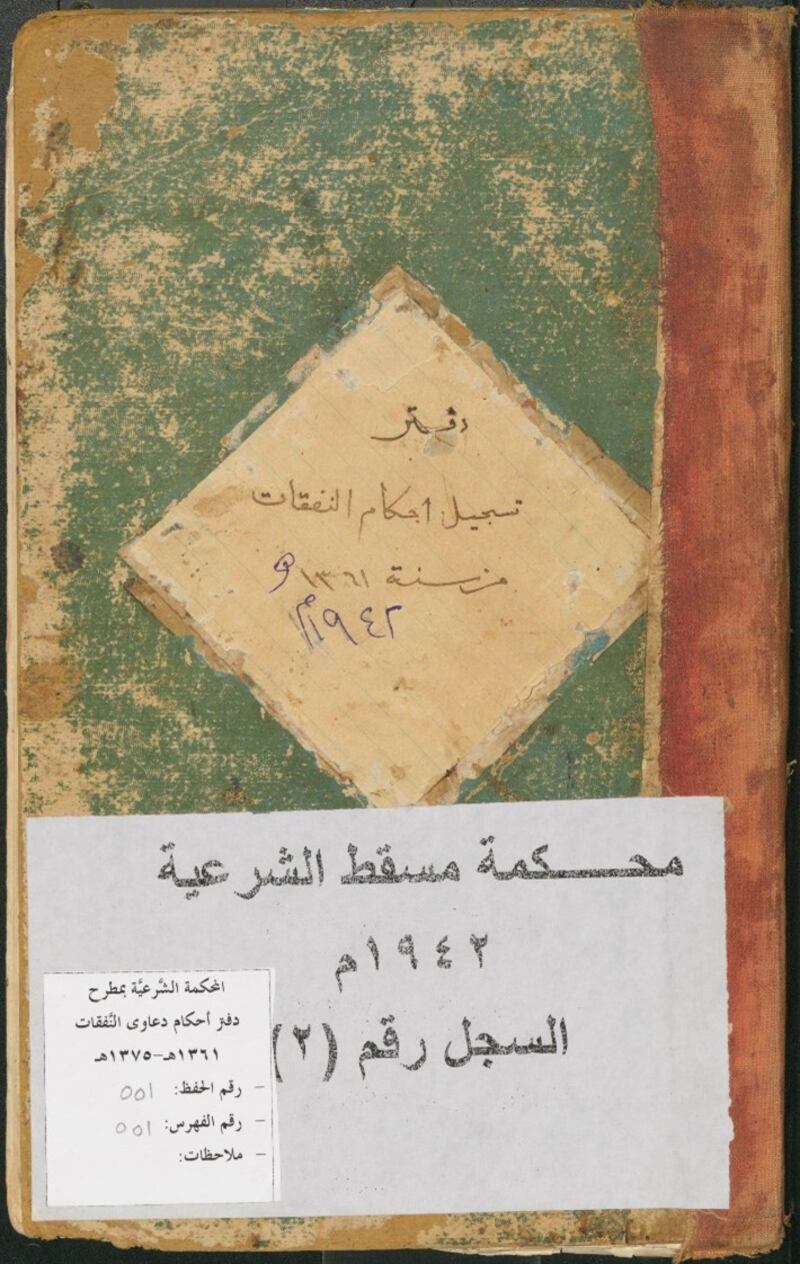 دفتر
تسجيل أحكام النفقات
من سنة ١٣٦١ هـ
١٩٤٢م
محكمة مسقط الشرعية
١٩٤٢م
السجل رقم (٢)
المحكمة الشَّرعيَّة بمطرح
دفتر أحكام دعاوى النَّفقات
١٣٦١هـ-١٣٧٥هـ
- رقم الحفظ: ٥٥١
- رقم الفهرس: ٥٥١
- ملاحظات: